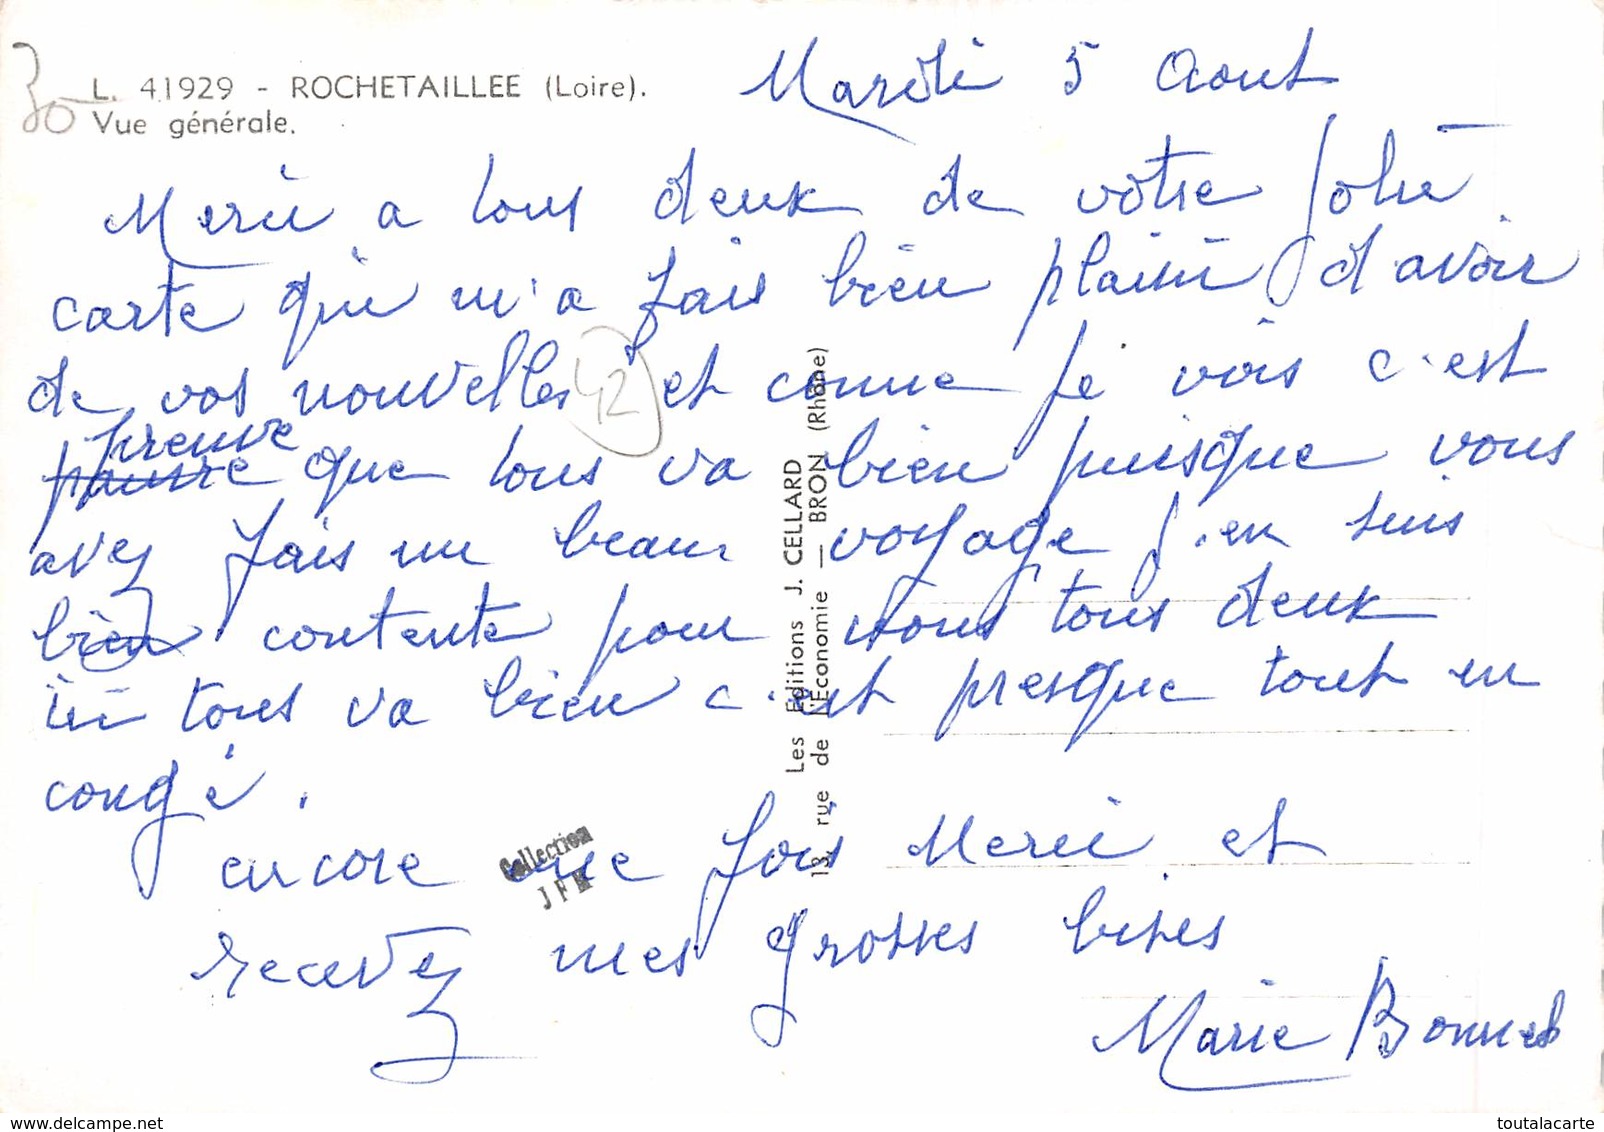 L. 41929 - ROCHETAILLEE (Loire).
Vue générale.
30
Mardi 5 Aout
Merci a tous deux de votre jolie
carte qui m'a fais bien plaisir d'avoir
de vos nouvelles et comme je vois c'est
preuve que tous va bien puisque vous
avez fais un beau voyage j'en suis
bien contente pour vous tous deux
ici tous va bien c'est presque tout en
congé.
encore une fois Merci et
recevez mes grosses bises
Marie Bonnet
42
Les Editions J. CELLARD
13, rue de l'Economie — BRON (Rhône)
Collection
J F M
delcampe.net
toutalacarte